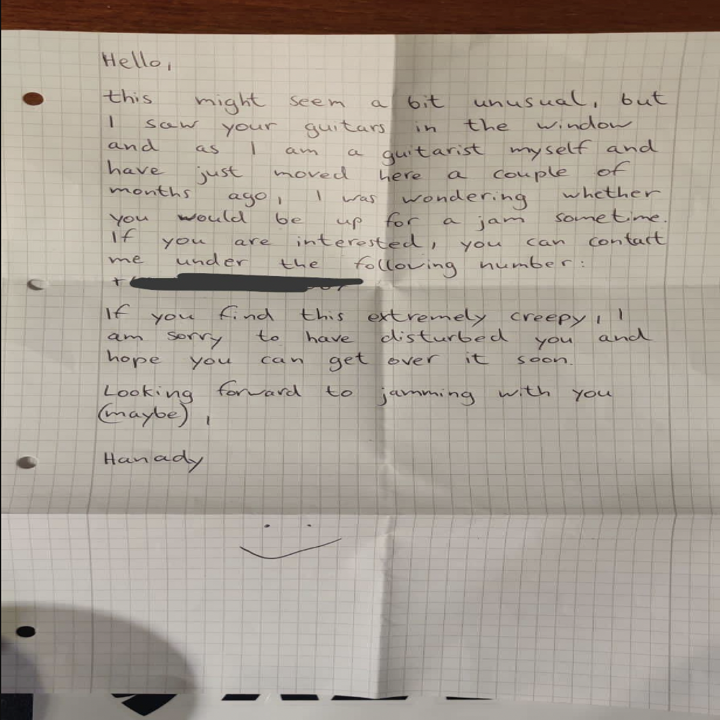 Hello,
this might seem a bit unusual, but
I saw your guitars in the window
and as I am a guitarist myself and
have just moved here a couple of
months ago, I was wondering whether
you would be up for a jam sometime.
If you are interested, you can contact
me under the following number:
If you find this extremely creepy, I
am sorry to have disturbed you and
hope you can get over it soon.
Looking forward to jamming with you
(maybe),
Hanady